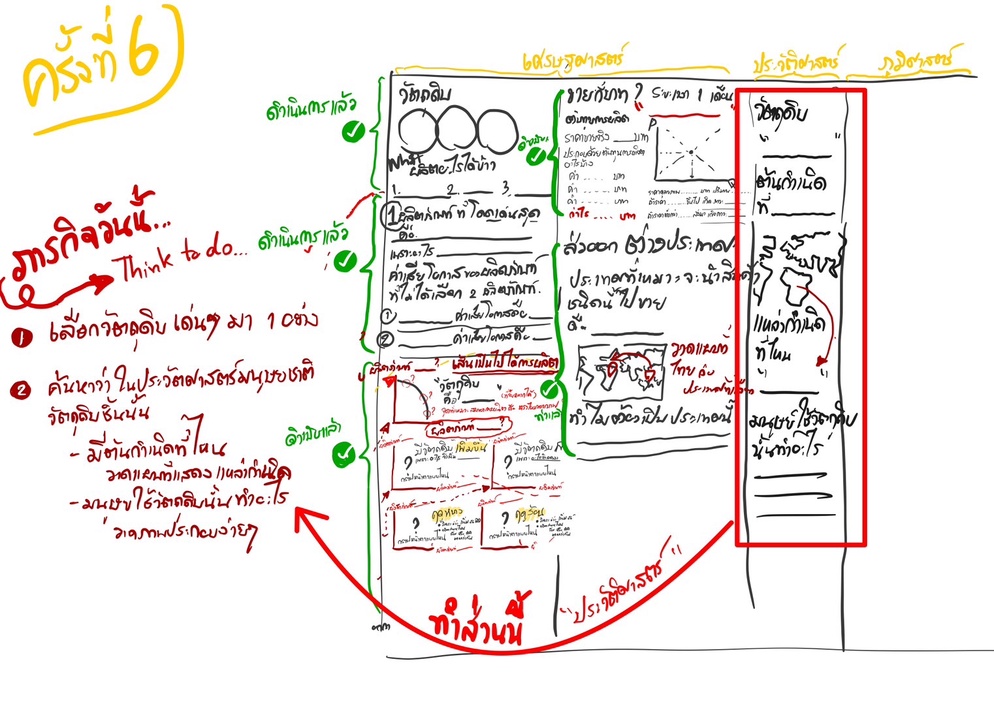 ครั้งที่ 6
เศรษฐศาสตร์
ประวัติศาสตร์
ภูมิศาสตร์
ภารกิจวันนี้...
Think to do...
1 เลือกวัตถุดิบเด่นๆ มา 1 อย่าง
2 ค้นหาว่าในประวัติศาสตร์มนุษยชาติ
วัตถุดิบชิ้นนั้น
- มีต้นกำเนิดที่ไหน
วาดแผนที่แสดงแหล่งกำเนิด
- มนุษย์ใช้วัตถุดิบนั้นทำอะไร
วาดภาพประกอบง่ายๆ
ดำเนินการแล้ว
ดำเนินการแล้ว
ดำเนินแล้ว
วัตถุดิบ
ผลิตอะไรได้บ้าง
1. 2. 3.
1 ผลิตภัณฑ์ที่โดดเด่นสุด
คือ
เพราะอะไร
ค่าเสียโอกาสของผลิตภัณฑ์
ที่ไม่ได้เลือก 2 ผลิตภัณฑ์.
1 ค่าเสียโอกาสคือ
2 ค่าเสียโอกาสคือ
เส้นเป็นไปได้การผลิต
"วัตถุดิบ"
คือ
มีวัตถุดิบเพิ่มขึ้น
มีวัตถุดิบ
ฤดูหนาว
ฤดูร้อน
ขายกี่บาท? ระยะเวลา 1 เดือน
ต้นทุนการผลิต
ราคาขายจริง บาท
ค่า .... บาท
ค่า .... บาท
ค่า .... บาท
กำไร .... บาท
P
Q
ส่งออก ต่างประเทศ
ประเทศที่เหมาะจะนำสินค้า
ชนิดนี้ไปขาย
คือ
วาดแผนที่
ไทย กับ
ประเทศที่เลือก
ทำแล้ว
ทำไมต้องเป็นประเทศนี้
วัตถุดิบ
" "
ต้นกำเนิด
ที่
แหล่งกำเนิด
ที่ไหน
มนุษย์ใช้วัตถุดิบ
นั้นทำอะไร
ทำส่วนนี้
"ประวัติศาสตร์"